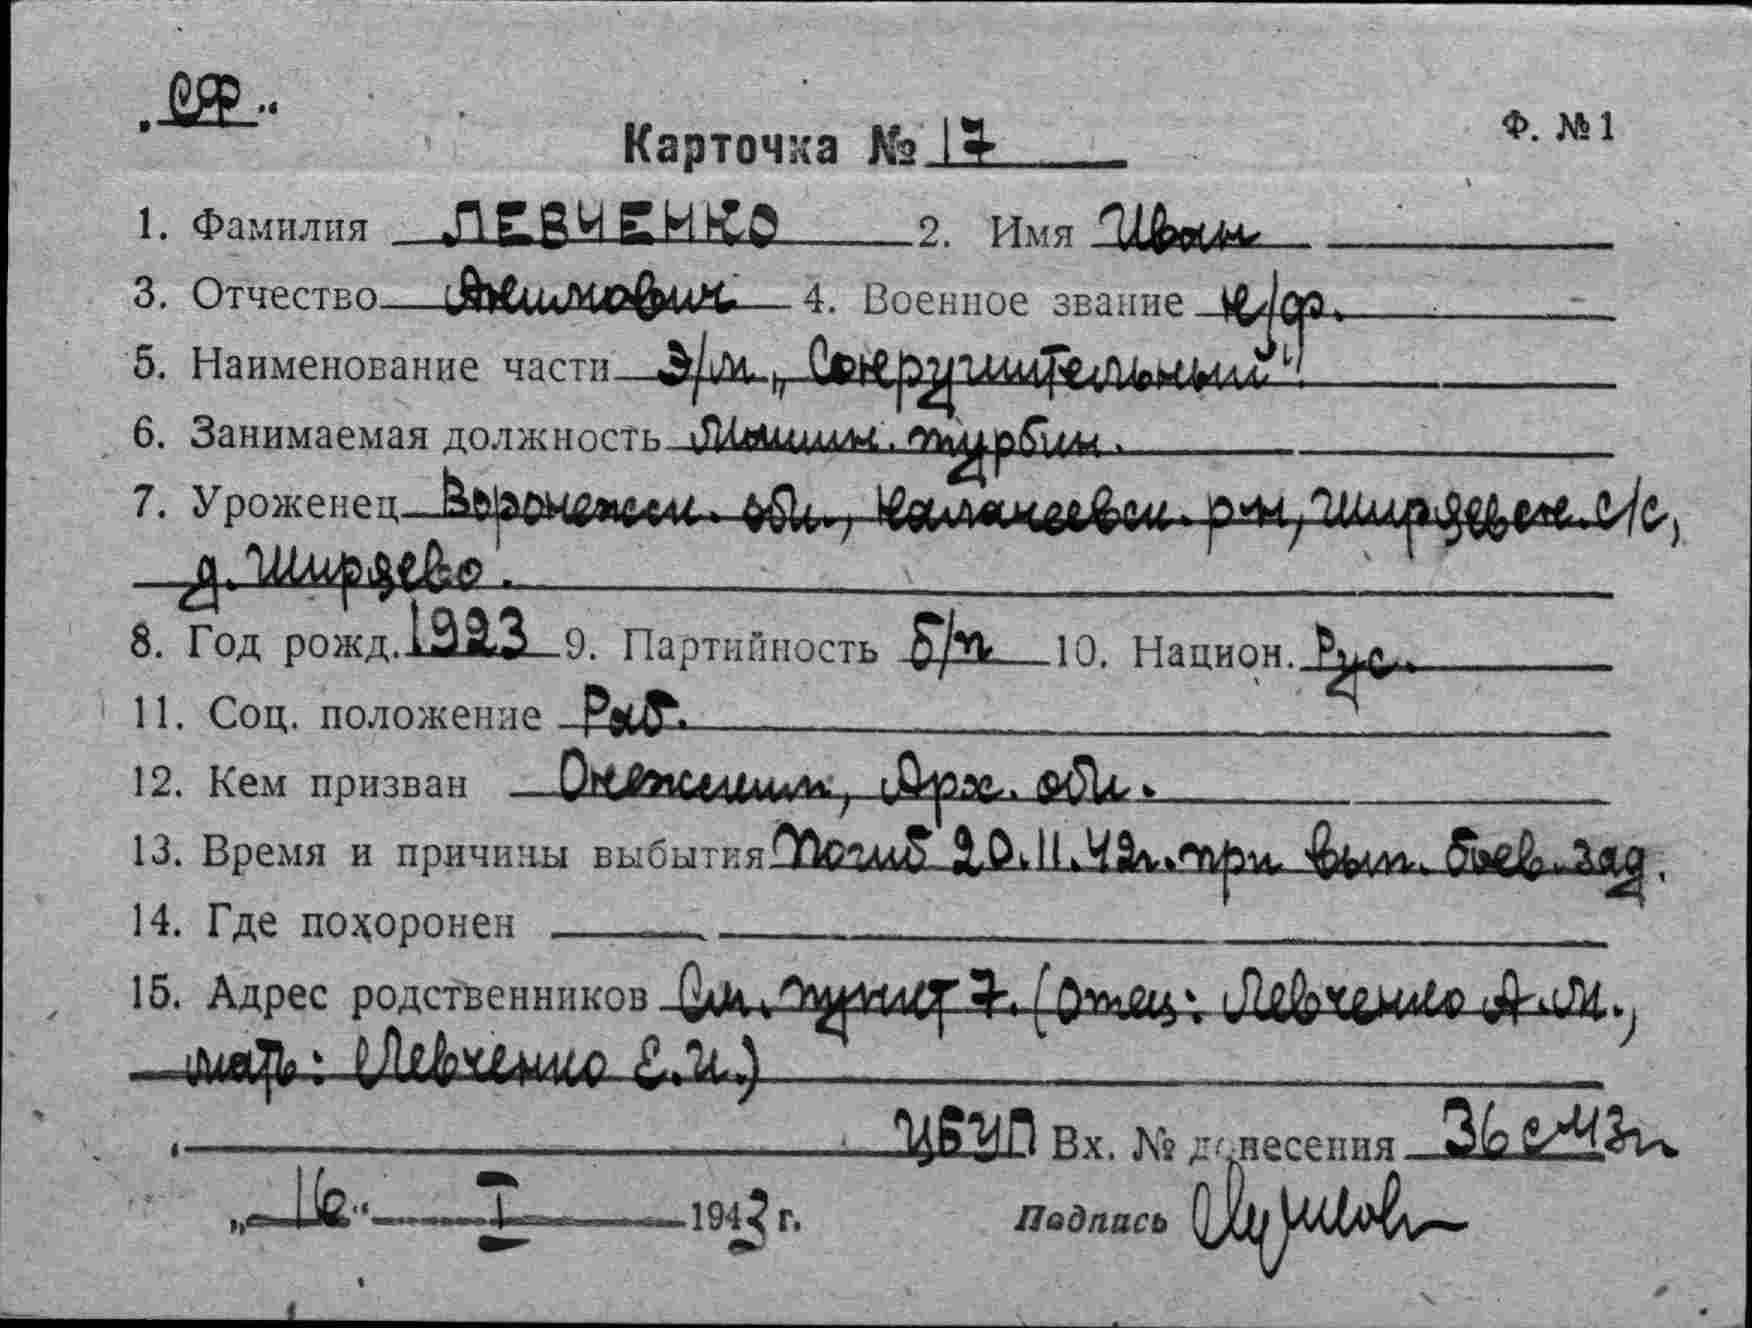 „СФ"
Карточка № 17
Ф. № 1
1. Фамилия ЛЕВЧЕНКО 2. Имя Иван
3. Отчество Акимович 4. Военное звание к/ф.
5. Наименование части Э/м „Сокрушительный"
6. Занимаемая должность Машин. турбин.
7. Уроженец Воронежск. обл., Калачеевск. р-н, Ширяевск. с/с,
д. Ширяево.
8. Год рожд. 1923 9. Партийность б/п 10. Национ. Рус.
11. Соц. положение Раб.
12. Кем призван Онежским, Арх. обл.
13. Время и причины выбытия Погиб 20.11.42г. при вып. боев. зад.
14. Где похоронен
15. Адрес родственников См. пункт 7. (Отец: Левченко А.М.,
мать: Левченко Е.И.)
ЦБУП Вх. № донесения 36с-43г
„16" I 1943 г. Подпись